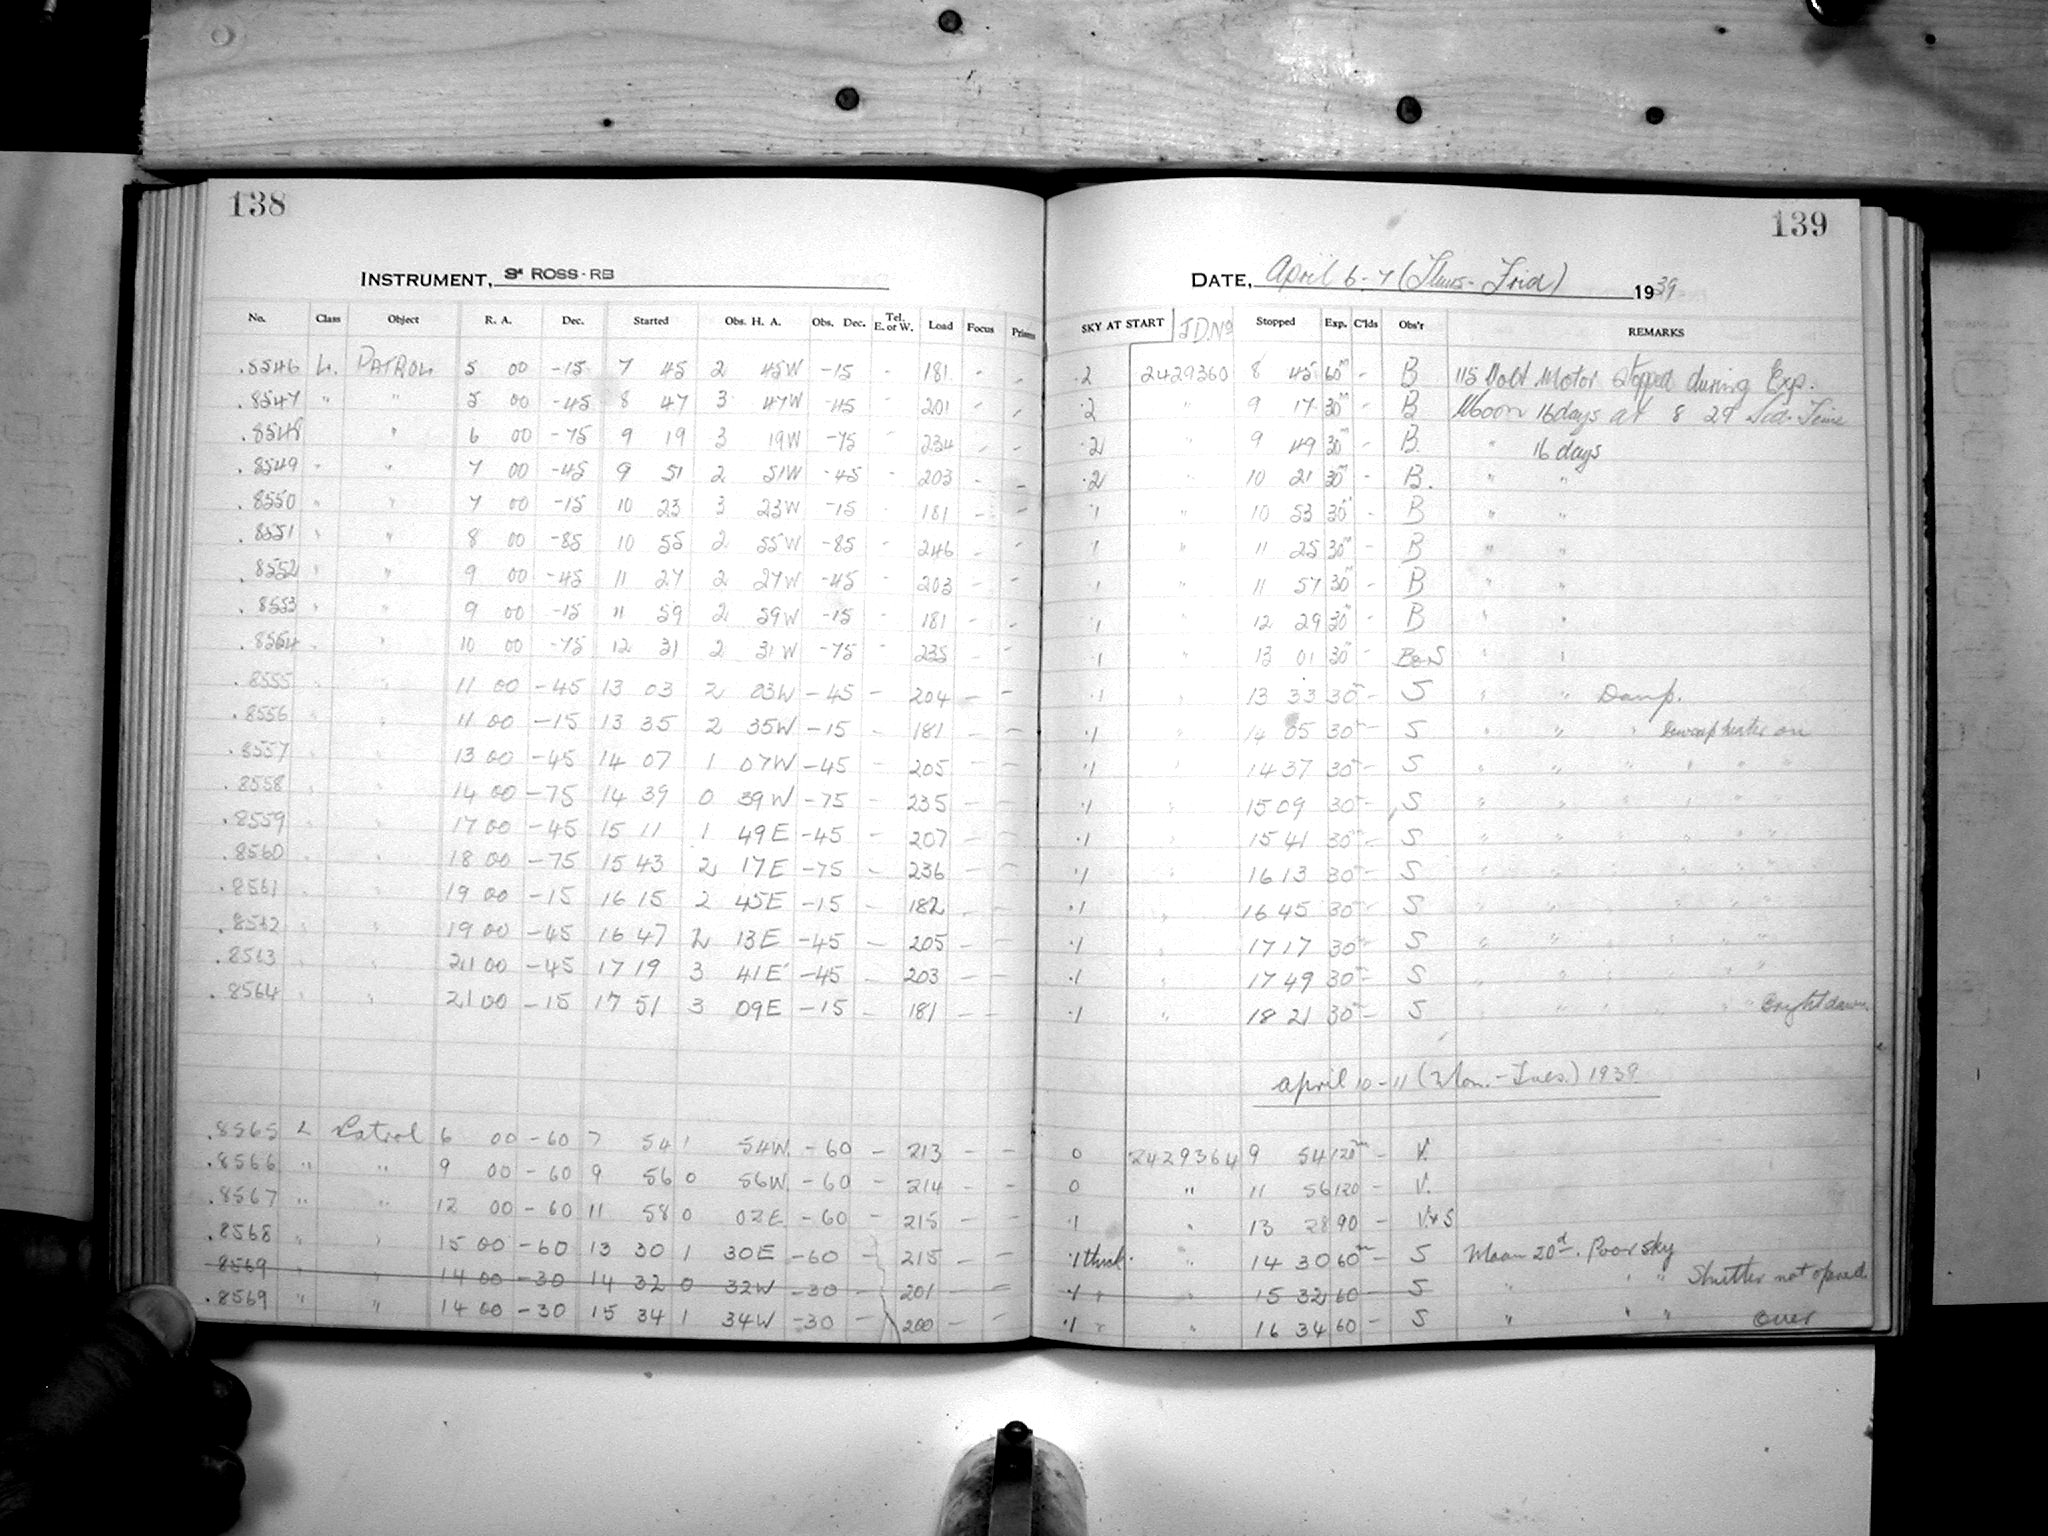 138
INSTRUMENT, 3" ROSS-RB
No. Class Object R. A. Dec. Started Obs. H. A. Obs. Dec. Tel. E. or W. Load Focus Prism
.8546 L. PATROL 5 00 -15 7 45 2 45W -15 - 181 - -
.8547 " " 5 00 -45 8 47 3 47W -45 - 201 - -
.8548 " 6 00 -75 9 19 3 19W -75 - 234 - -
.8549 " " 7 00 -45 9 51 2 51W -45 - 203 - -
.8550 " " 7 00 -15 10 23 3 23W -15 - 181 - -
.8551 " " 8 00 -85 10 55 2 55W -85 - 246 - -
.8552 " " 9 00 -45 11 27 2 27W -45 - 203 - -
.8553 " " 9 00 -15 " 59 2 59W -15 - 181 - -
.8554 " " 10 00 -75 12 31 2 31W -75 - 235 - -
.8555 " " 11 00 -45 13 03 2 03W -45 - 204 - -
.8556 " " 11 00 -15 13 35 2 35W -15 - 181 - -
.8557 " " 13 00 -45 14 07 1 07W -45 - 205 - -
.8558 " " 14 00 -75 14 39 0 39W -75 - 235 - -
.8559 " " 17 00 -45 15 11 1 49E -45 - 207 - -
.8560 " " 18 00 -75 15 43 2 17E -75 - 236 - -
.8561 " " 19 00 -15 16 15 2 45E -15 - 182 - -
.8562 " " 19 00 -45 16 47 2 13E -45 - 205 - -
.8563 " " 21 00 -45 17 19 3 41E -45 - 203 - -
.8564 " " 21 00 -15 17 51 3 09E -15 - 181 - -
.8565 L Patrol 6 00 -60 7 54 1 54W. -60 - 213 - -
.8566 " " 9 00 -60 9 56 0 56W. -60 - 214 - -
.8567 " " 12 00 -60 11 58 0 02E. -60 - 215 - -
.8568 " " 15 00 -60 13 30 1 30E -60 - 215 - -
8569 " " 14 00 -30 14 32 0 32W -30 - 201 - -
.8569 " " 14 00 -30 15 34 1 34W -30 - 200 - -
139
DATE, April 6-7 (Thurs-Frid) 1939
SKY AT START J.D.No Stopped Exp. C'lds Obs'r REMARKS
.2 2429360 8 45 60m - B 115 Volt Motor stopped during Exp.
.2 " 9 17 30m - B Moon 16 days at 8 29 Sid. Time
.2 " 9 49 30m - B. " 16 days
.2 " 10 21 30m - B. " "
.1 " 10 53 30m - B " "
.1 " 11 25 30m - B " "
.1 " 11 57 30m - B " "
.1 " 12 29 30m - B " "
.1 " 13 01 30m - B&S " "
.1 " 13 33 30m - S " " Damp.
.1 " 14 05 30m - S " " " Dewcap heater on
.1 " 14 37 30m - S " " " " " "
.1 " 15 09 30m - S " " " " " "
.1 " 15 41 30m - S " " " " " "
.1 " 16 13 30m - S " " " " " "
.1 " 16 45 30m - S " " " " " "
.1 " 17 17 30m - S " " " " " "
.1 " 17 49 30m - S " " " " " "
.1 " 18 21 30m - S " " " " " " Bright dawn.
April 10-11 (Mon.-Tues.) 1939
0 2429364 9 54 120m - V.
0 " 11 56 120 - V.
.1 " 13 28 90 - V&S
.1 thick. " 14 30 60m - S Moon 20d. Poor sky
.1 " " 15 32 60 - S " " " Shutter not opened.
.1 " " 16 34 60 - S " " " over